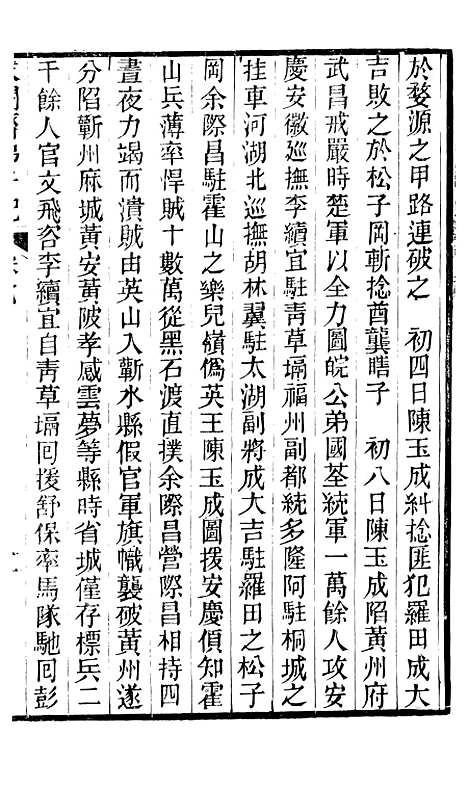 於婺源之甲路連破之　初四日陳玉成糾捻匪犯羅田成大
吉敗之於松子岡斬捻酋龔瞎子　初八日陳玉成陷黃州府
武昌戒嚴時楚軍以全力圖皖公弟國荃統軍一萬餘人攻安
慶安徽巡撫李續宜駐青草塥福州副都統多隆阿駐桐城之
挂車河湖北巡撫胡林翼駐太湖副將成大吉駐羅田之松子
岡余際昌駐霍山之樂兒嶺僞英王陳玉成圖援安慶偵知霍
山兵薄率悍賊十數萬從黑石渡直撲余際昌營際昌相持四
晝夜力竭而潰賊由英山入蘄水縣假官軍旗幟襲破黃州遂
分陷蘄州麻城黃安黃陂孝感雲夢等縣時省城僅存標兵二
千餘人官文飛咨李續宜自青草塥回援舒保率馬隊馳回彭